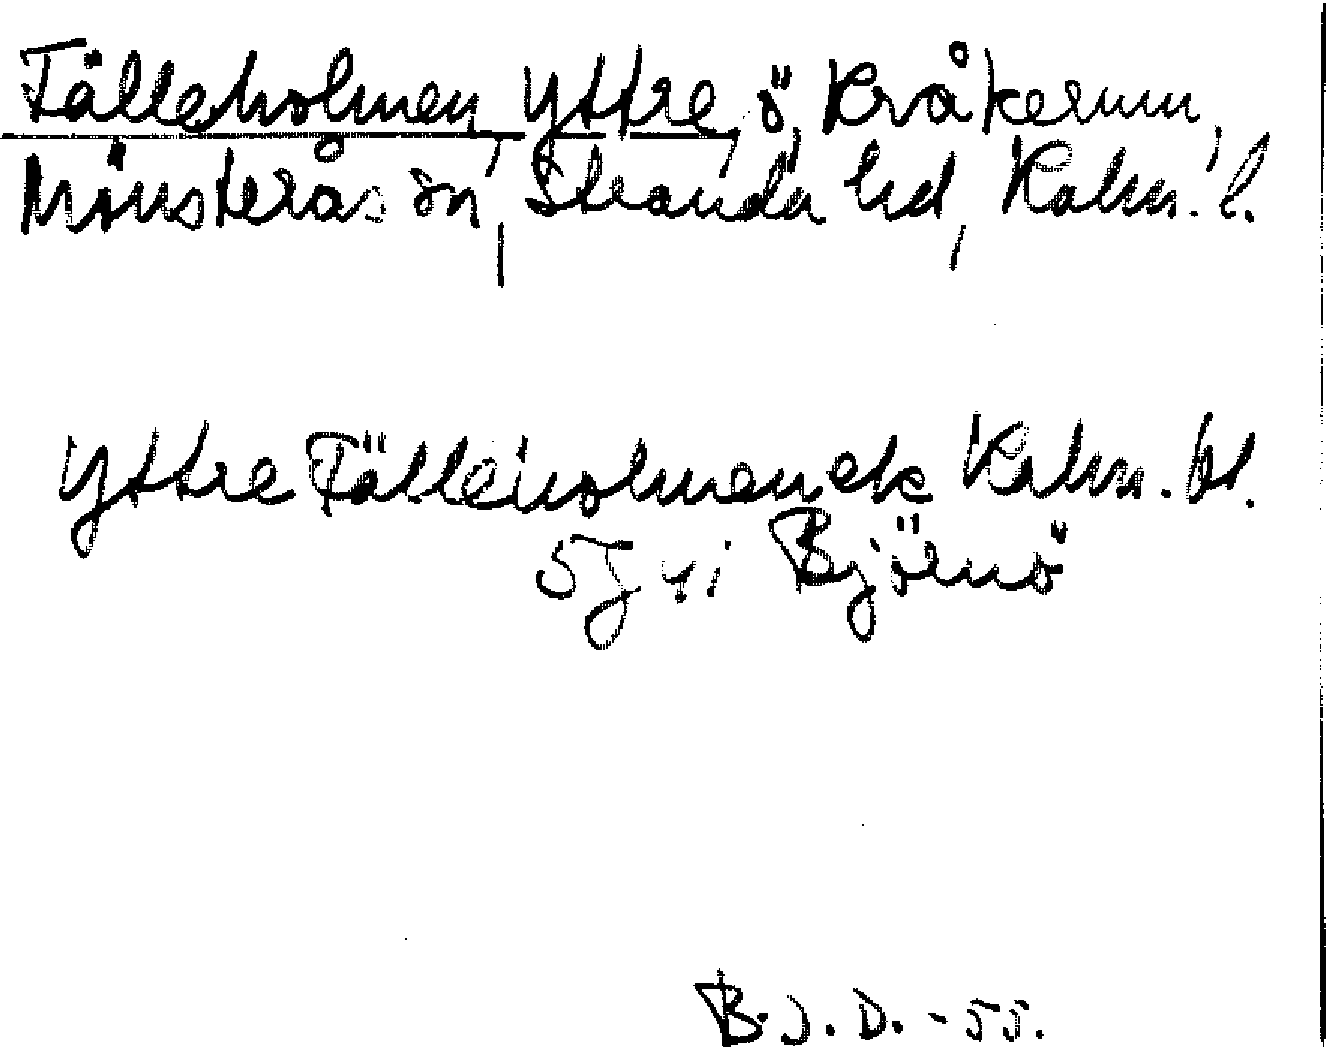 Fälleholmen, Yttre, ö, Kråkerum,
Mönsterås sn, Stranda hd, Kalm. l.
Yttre Fälleholmen ek Kalm. bl.
5 j Björnö
B.J.D. - 55.